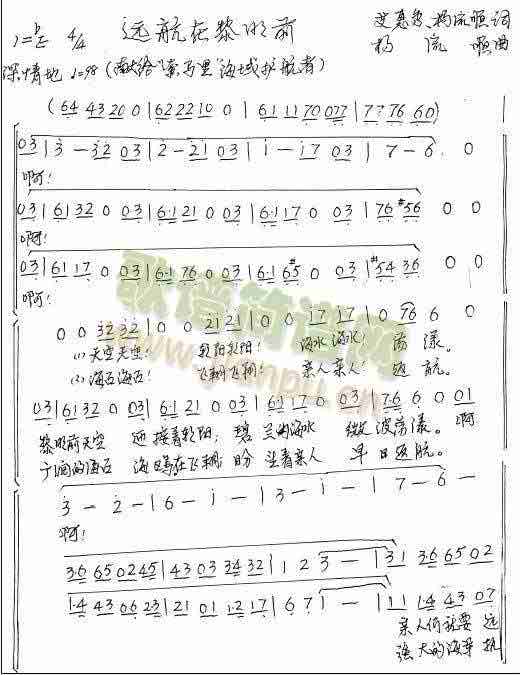 1=♭E 4/4 远航在黎明前 艾惠珍、杨流顺词
杨流顺曲
深情地 ♩=98 (献给“索马里”海域护航者)
(64 43 20 0 | 62 22 10 0 | 61 11 70 077 | 77 76 60)
03 | 3 - 32 03 | 2 - 21 03 | 1 - 17 03 | 7 - 6. 0
啊!
03 | 61 32 0 03 | 6·1 21 0 03 | 6·1 17 0 03 | 76 #56 0 0
啊!
03 | 61 17 0 03 | 6·1 76 0 03 | 6·1 6#5 0 03 | #54 36 0 0
啊!
0 0 32 32 | 0 0 21 21 | 0 0 17 17 | 0 76 6 0
(1) 天空天空! 朝阳朝阳! 海水海水! 荡漾。
(2) 海石海石! 飞翔飞翔! 亲人亲人! 返航。
03 | 61 32 0 03 | 6·1 21 0 03 | 6·1 17 0 03 | 7·6 6 0 01
黎明前天空 迎接着朝阳, 碧兰的海水 微波荡漾。啊
海鸥在飞翔, 盼望着亲人 早日返航。
3 - 2 - | 6 - 1 - | 3 - 1 - | 7 - 6 -
啊!
3·6 65 02 45 | 43 03 34 32 | 1 2 3 - | 31 3·6 65 02
1·4 43 06 23 | 21 01 1·2 17 | 6 7 1 - | 11 1·4 43 07
亲人们就要远
强大的海军
歌谱简谱网